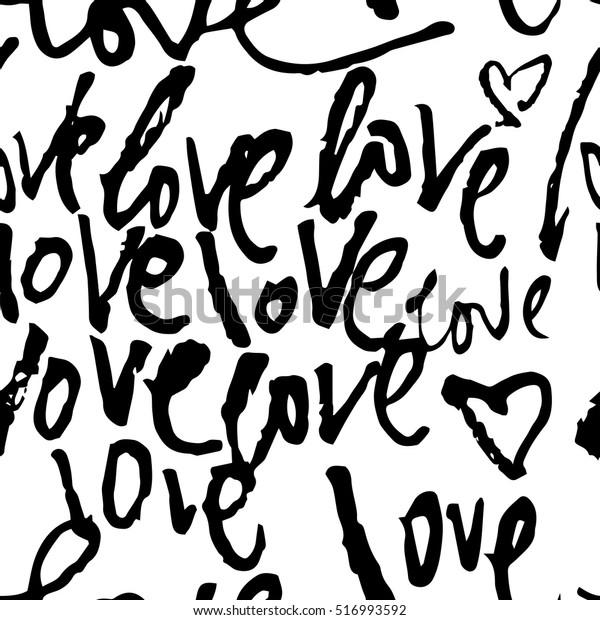 love
ove love love
love love love
love love
love love
shutterstock
shutterstock.com · 516993592